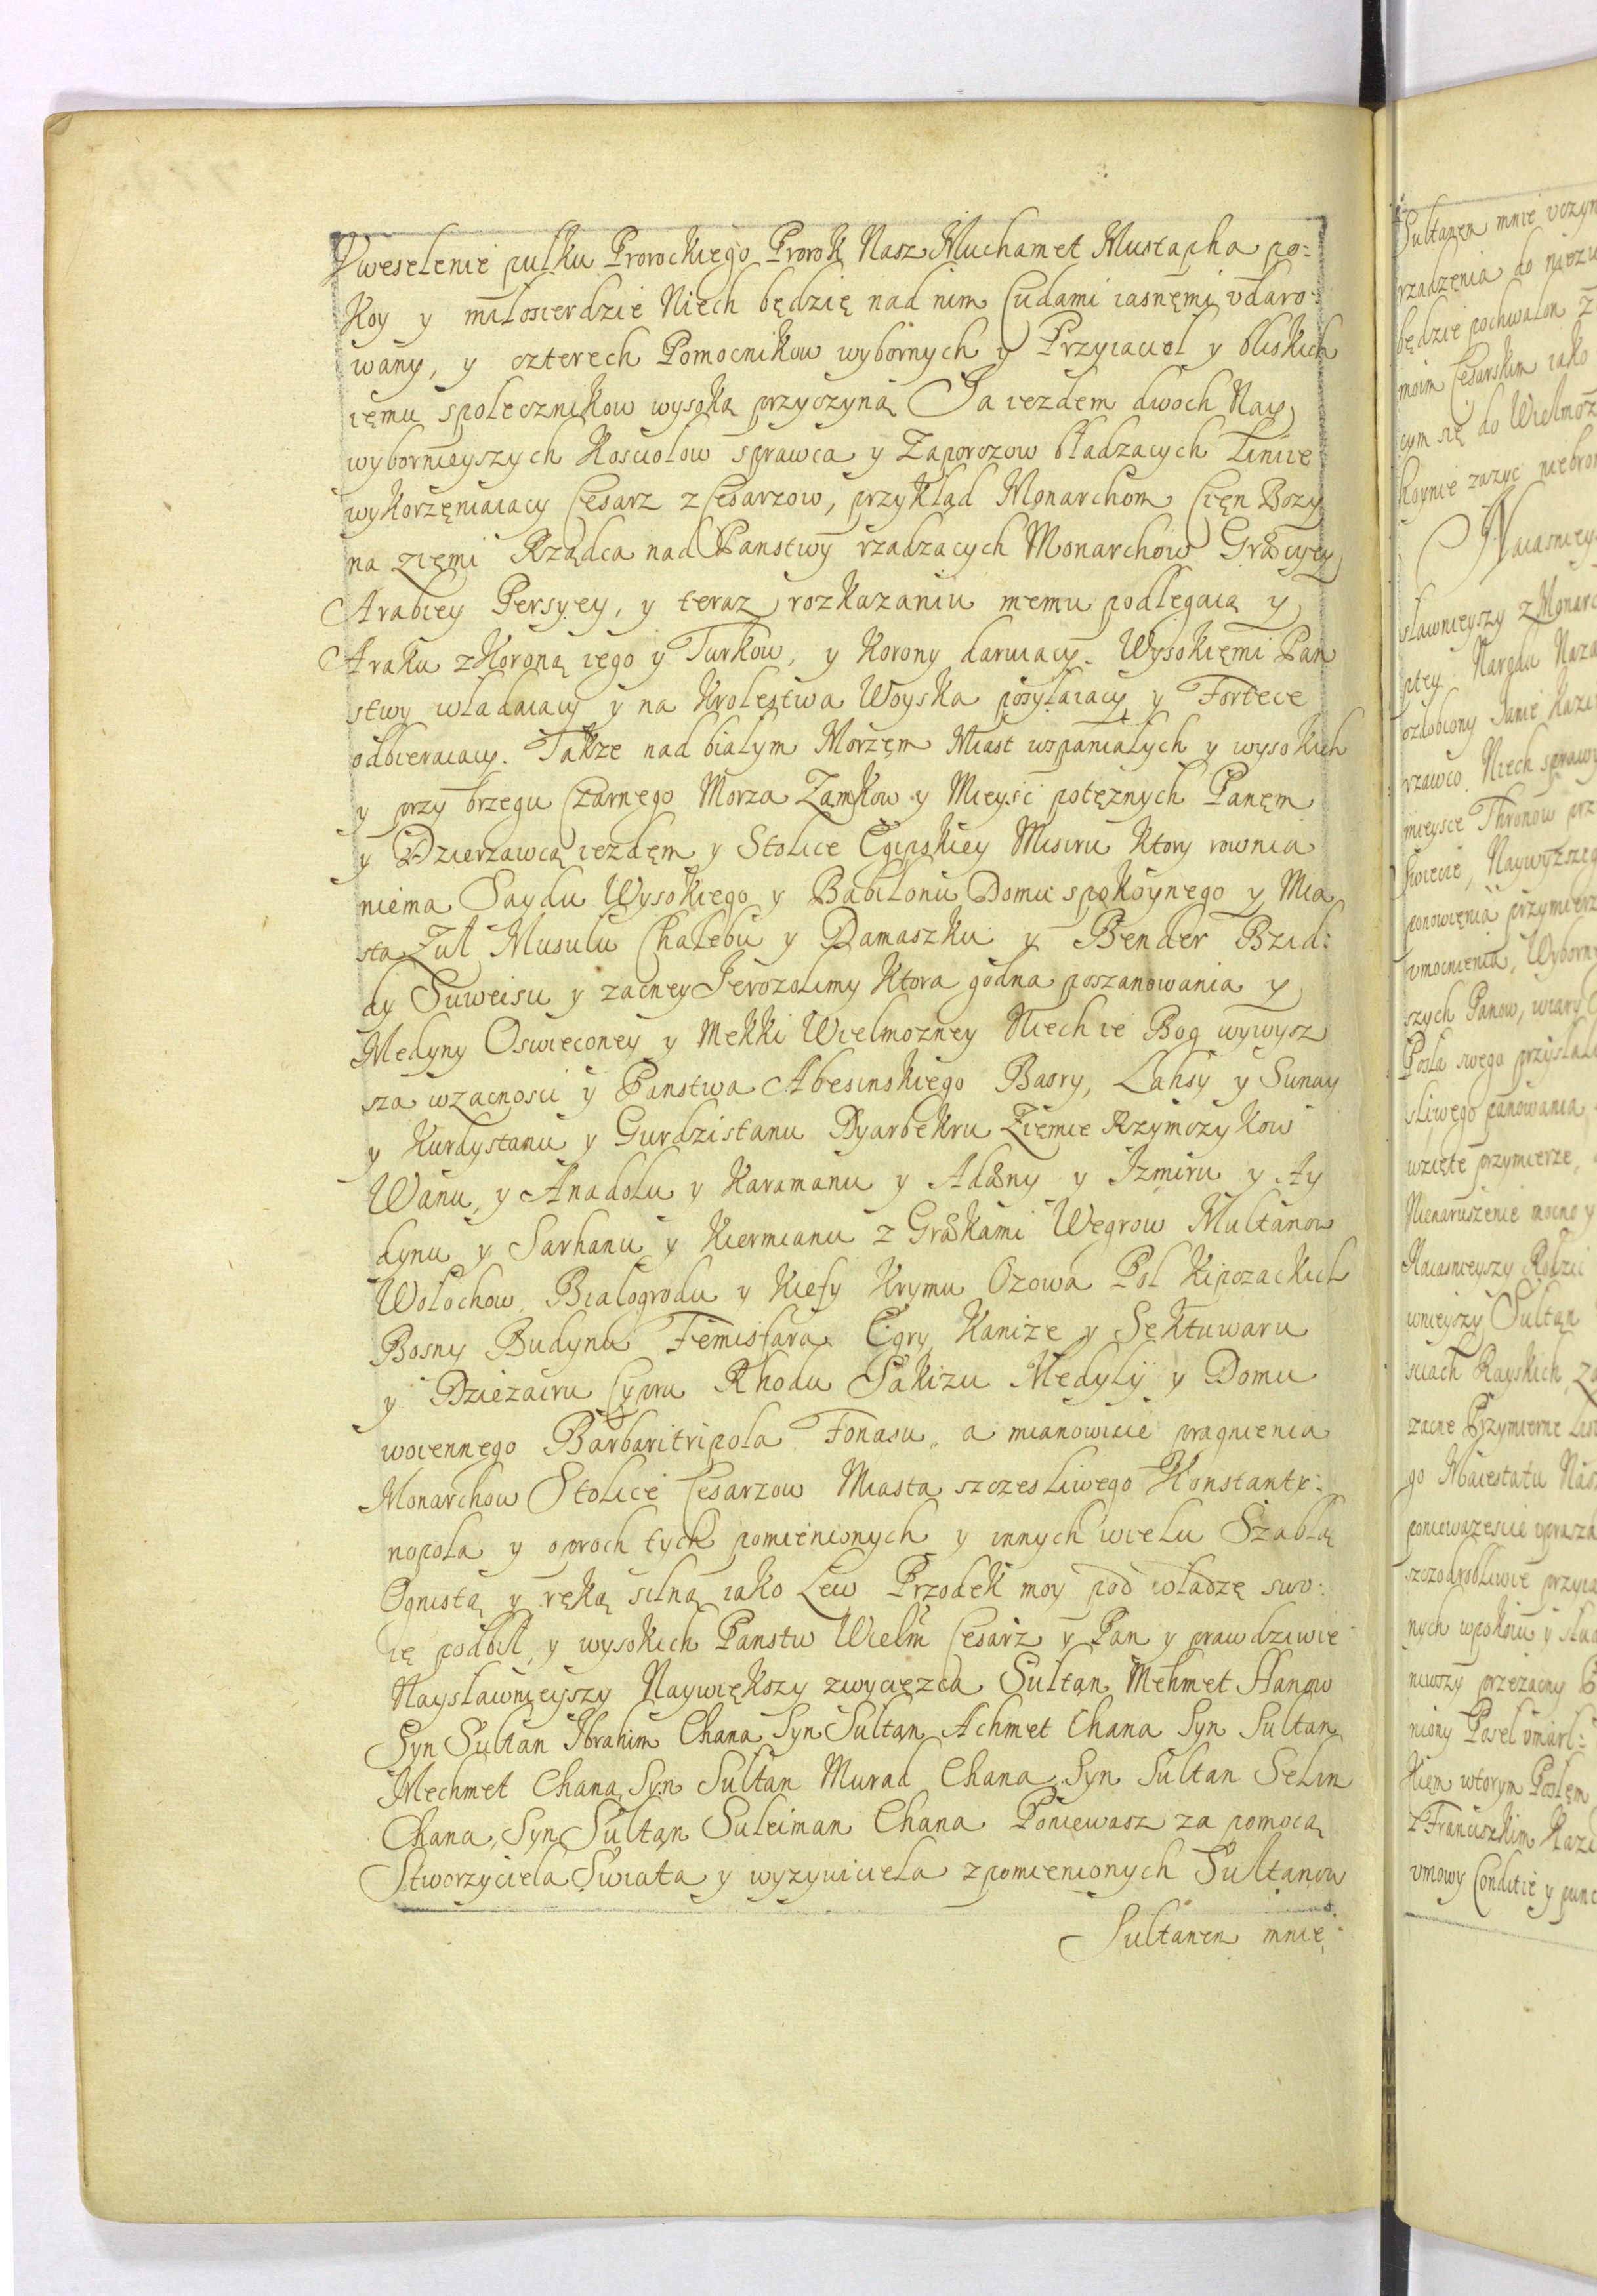 Vweselenie pulku Prorockiego Prorok Nasz Muchamet Mustapha po=
koy y miłosierdzie Niech będzię nad nim Cudami iasnęmi vdaro=
wany, y czterech Pomocnikow wybornych y Przyiaciol y bliskich
ięmu społecznikow wysoką przyczyną Ja iezdem dwoch Nay
wybornieyszych Kosciołow sprawca y Zaporozow bładzacych linie
wykorzęniaiacy Cesarz z Cesarzow, przykład Monarchom Cięn Bozy
na zięmi Rządca nad Panstwy rzadzacych Monarchow Græcyey
Arabiey Persyey, y teraz rozkazaniu memu podlegaią y
Araku z Koroną iego y Turkow, y Korony daruiacy. Wysokięmi Pan
stwy władaiacy y na Krolestwa Woyska posyłaiacy y Fortece
odbieraiacy. Także nad białym Morzęm Miast wspaniałych y wysokich
y przy brzegu Czarnego Morza Zamkow y Mieysc potęznych Panęm
y Dzierzawcą iezdęm y Stolice Egipskiey Misiru Ktory rownia
niema Saydu Wysokiego y Babilonu Domu spokoynego y Mia
sta Zul Musulu Chalebu y Damaszku y Bender Bzid:
dy Suweisu y zacney Jerozolimy Ktora godna poszanowania y
Medyny Oswieconey y Mekki Wielmozney Niech ie Bog wywysz
sza wzacnosci y Panstwa Abesinskiego Basry, Lahsy y Sunay
y Kurdystanu y Gurdzistanu Dyarbekru Zięmie Rzymczykow
Wanu, y Anadolu y Karamanu y Adany y Izmiru y Ay
dynu y Sarhanu y Kiermianu z Græakami Wegrow Multanow
Wołochow Białogrodu y Kiefy Krymu Ozowa Pol Kipczackich
Bosny Budynu Temisfara Egry Kanize y Sektuwaru
y Dziezairu Cypru Rhodu Sakizu Medylÿ y Domu
woiennego Barbaritripola Tonasu, a mianowicie pragnienia
Monarchow Stolice Cesarzow Miasta szczesliwego Konstanty:
nopola y oproch tych pomienionych y innych wielu Szablą
Ognistą y ręką silną iako Lew Przodek moy pod władzę swo:
ię podbił, y wysokich Panstw Wielm Cesarz y Pan y prawdziwie
Naysławnieyszy Naywiększy zwycięzca Sultan Mehmet Hanow
Syn Sultan Ibrahim Chana Syn Sultan Achmet Chana Syn Sultan
Mechmet Chana Syn Sultan Murad Chana Syn Sultan Selin
Chana, Syn Sultan Suleiman Chana Poniewasz za pomocą
Stworzyciela Swiata y wyzywiciela z pomienionych Sultanow
Sultanen mnię
Sultanen mnie vczyn
rzadzenia do niezw
będzie pochwalon z
moim Cesarskim iako
cym się do Wielmoz
koynie zazyc niebron
Naiasniey
sławnieyszy z Monarc
ptey Narodu Naza
ozdobiony Janie Kazi
rzawco Niech sprawy
mieysce Thronow prz
swiecie, Naywyzszeg
ponowięnia przymierz
vmocnienia, Wyborny
szych Panow, wiary
Posła swego przysłali
sliwego panowania
wzięte przymierze,
Nienaruszenie mocno y
Naiasnieyszy Rodzic
wnieyszy Sultan
sciach Rayskich
zacne Przymierne
go Maiestatu Nas
poniewazescie vprasza
szczodrobliwie przyia
nych wpokoiu y
niwszy przezacny
niony Poseł vmarł
kięm wtorym Posłęm
Franciszkim Kazi
vmowy Conditie y punc